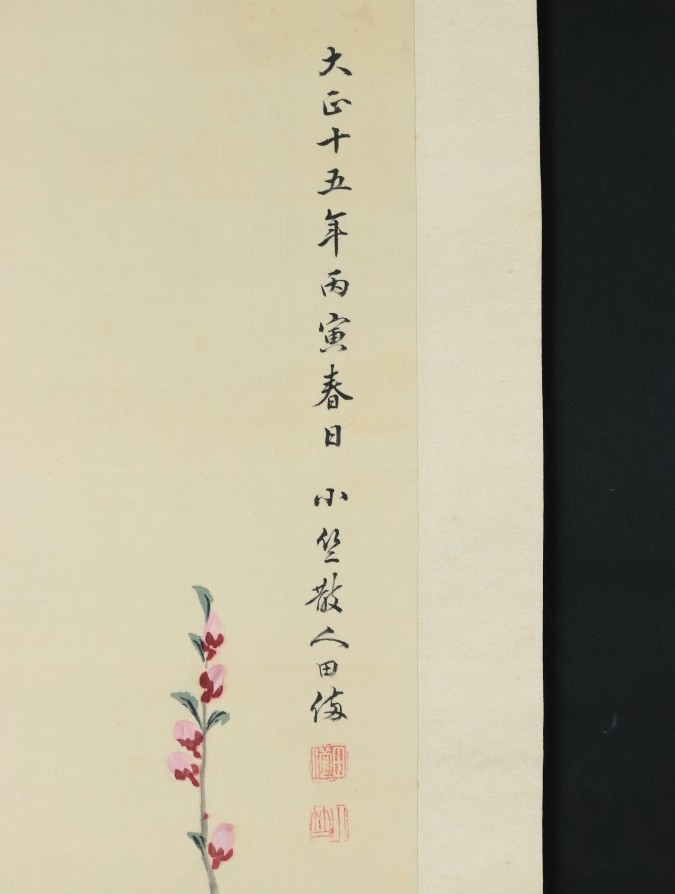 大正十五年丙寅春日 小竺散人田